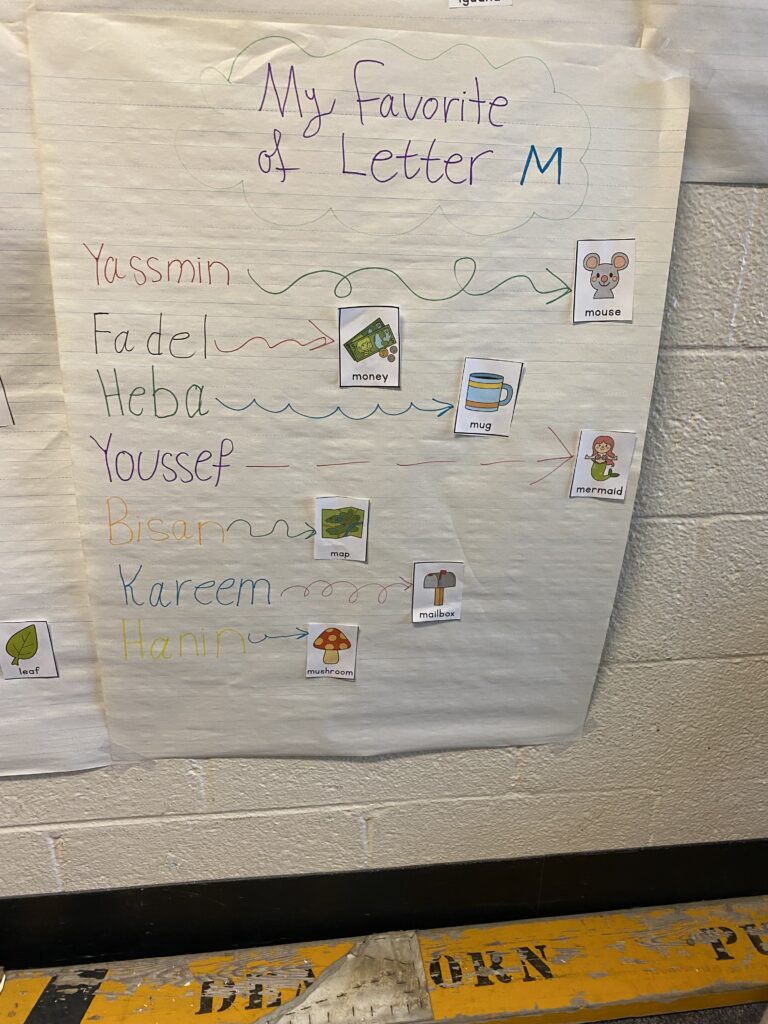 iguana
My Favorite
of Letter M
Yassmin
mouse
Fadel
money
Heba
mug
Youssef
mermaid
Bisan
map
Kareem
mailbox
Hanin
mushroom
leaf